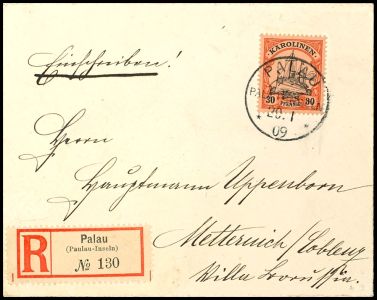 Einschreiben!
KAROLINEN
30 PFENNIG 30
PALAU
20.1
09
Herrn
Hauptmann Uppenborn
Metternich / Coblenz
Villa Borussia.
R
Palau
(Paulau-Inseln)
№ 130